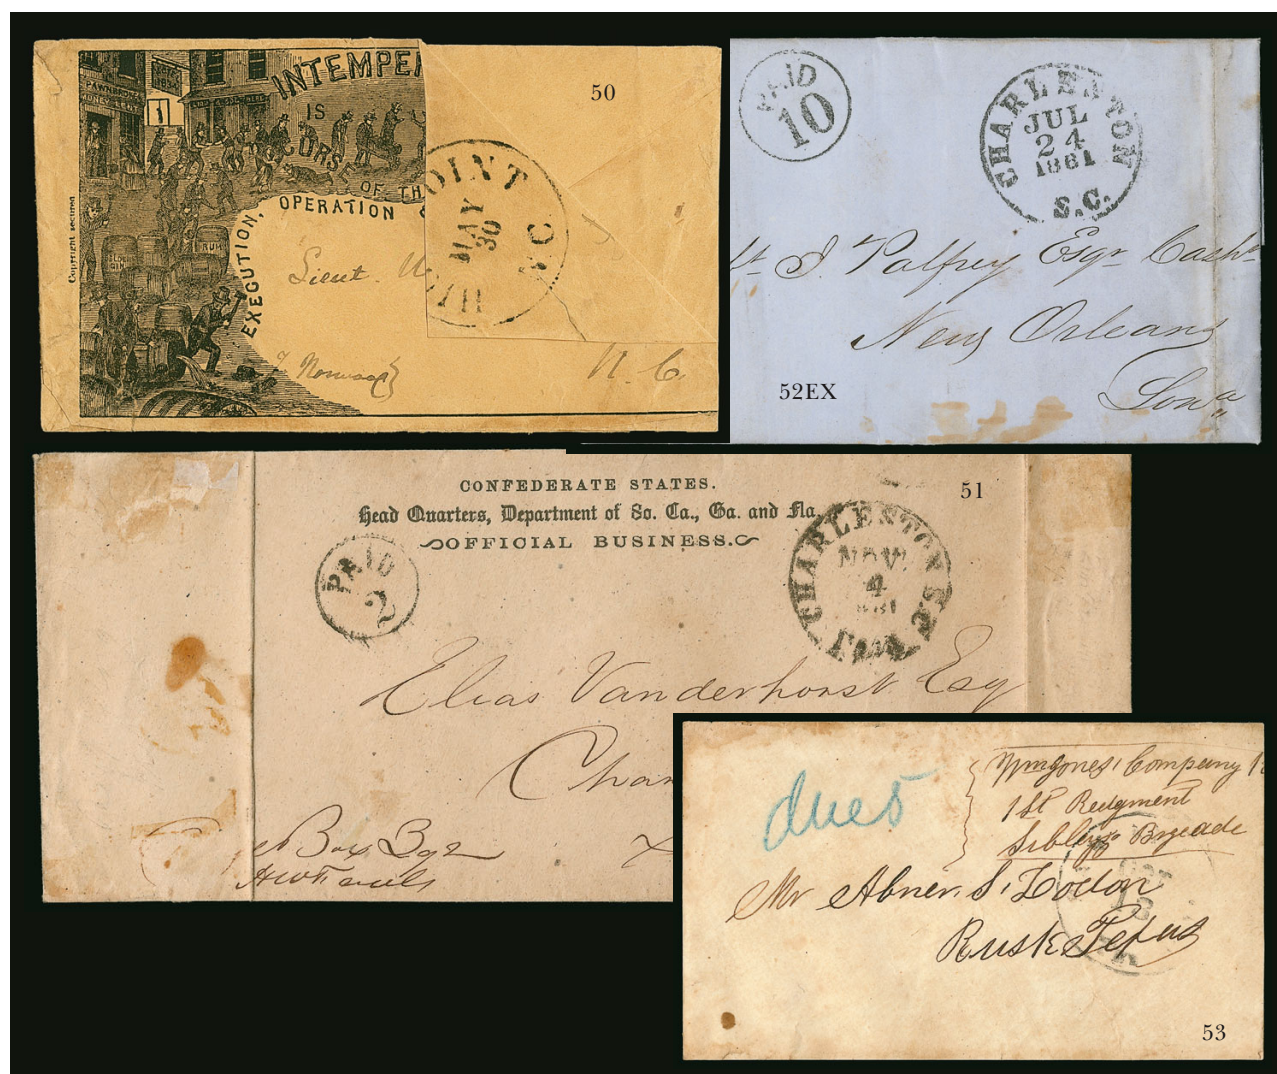 INTEMPE
IS
CURSE OF TH
EXECUTION, OPERATION
PAWNBRO
MONEY
1
OLD GIN
RUM
Copyright secured
50
OINT
MAY
30
HI
N.C
Lieut.
Norwood
N. C.
PAID
10
CHARLESTON
JUL
24
1861
S.C.
J. Palfrey Esqr Cashr
New Orleans
Loua
52EX
CONFEDERATE STATES.
Head Quarters, Department of So. Ca., Ga. and Fla.
OFFICIAL BUSINESS.
51
PAID
2
CHARLESTON S.C.
NOV
4
Elias Vanderhorst Esq
Char
Box
due 5
Wm Jones, Company
1st Redgment
Sibleys Bregade
Mr Abner. S,
Rusk Texas
OCT
13
53